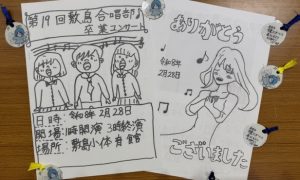 第19回敷島合唱部
卒業コンサート
日時:令和8年 2月28日
開場:1時開演 3時終演
場所:敷島小体育館
ありがとう
令和8年
2月28日
ございました